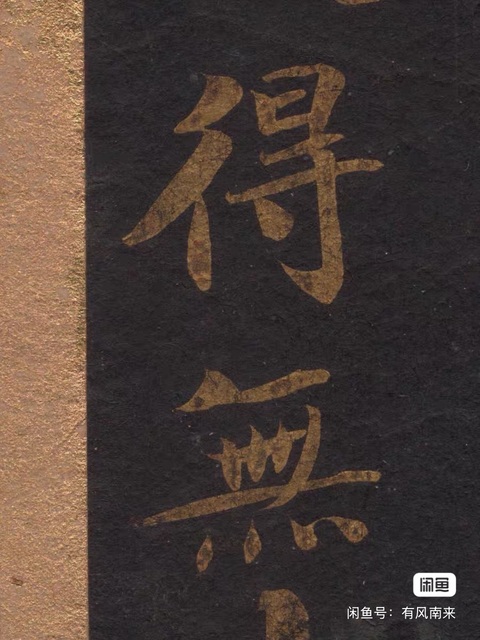 得無
闲鱼
闲鱼号：有风南来